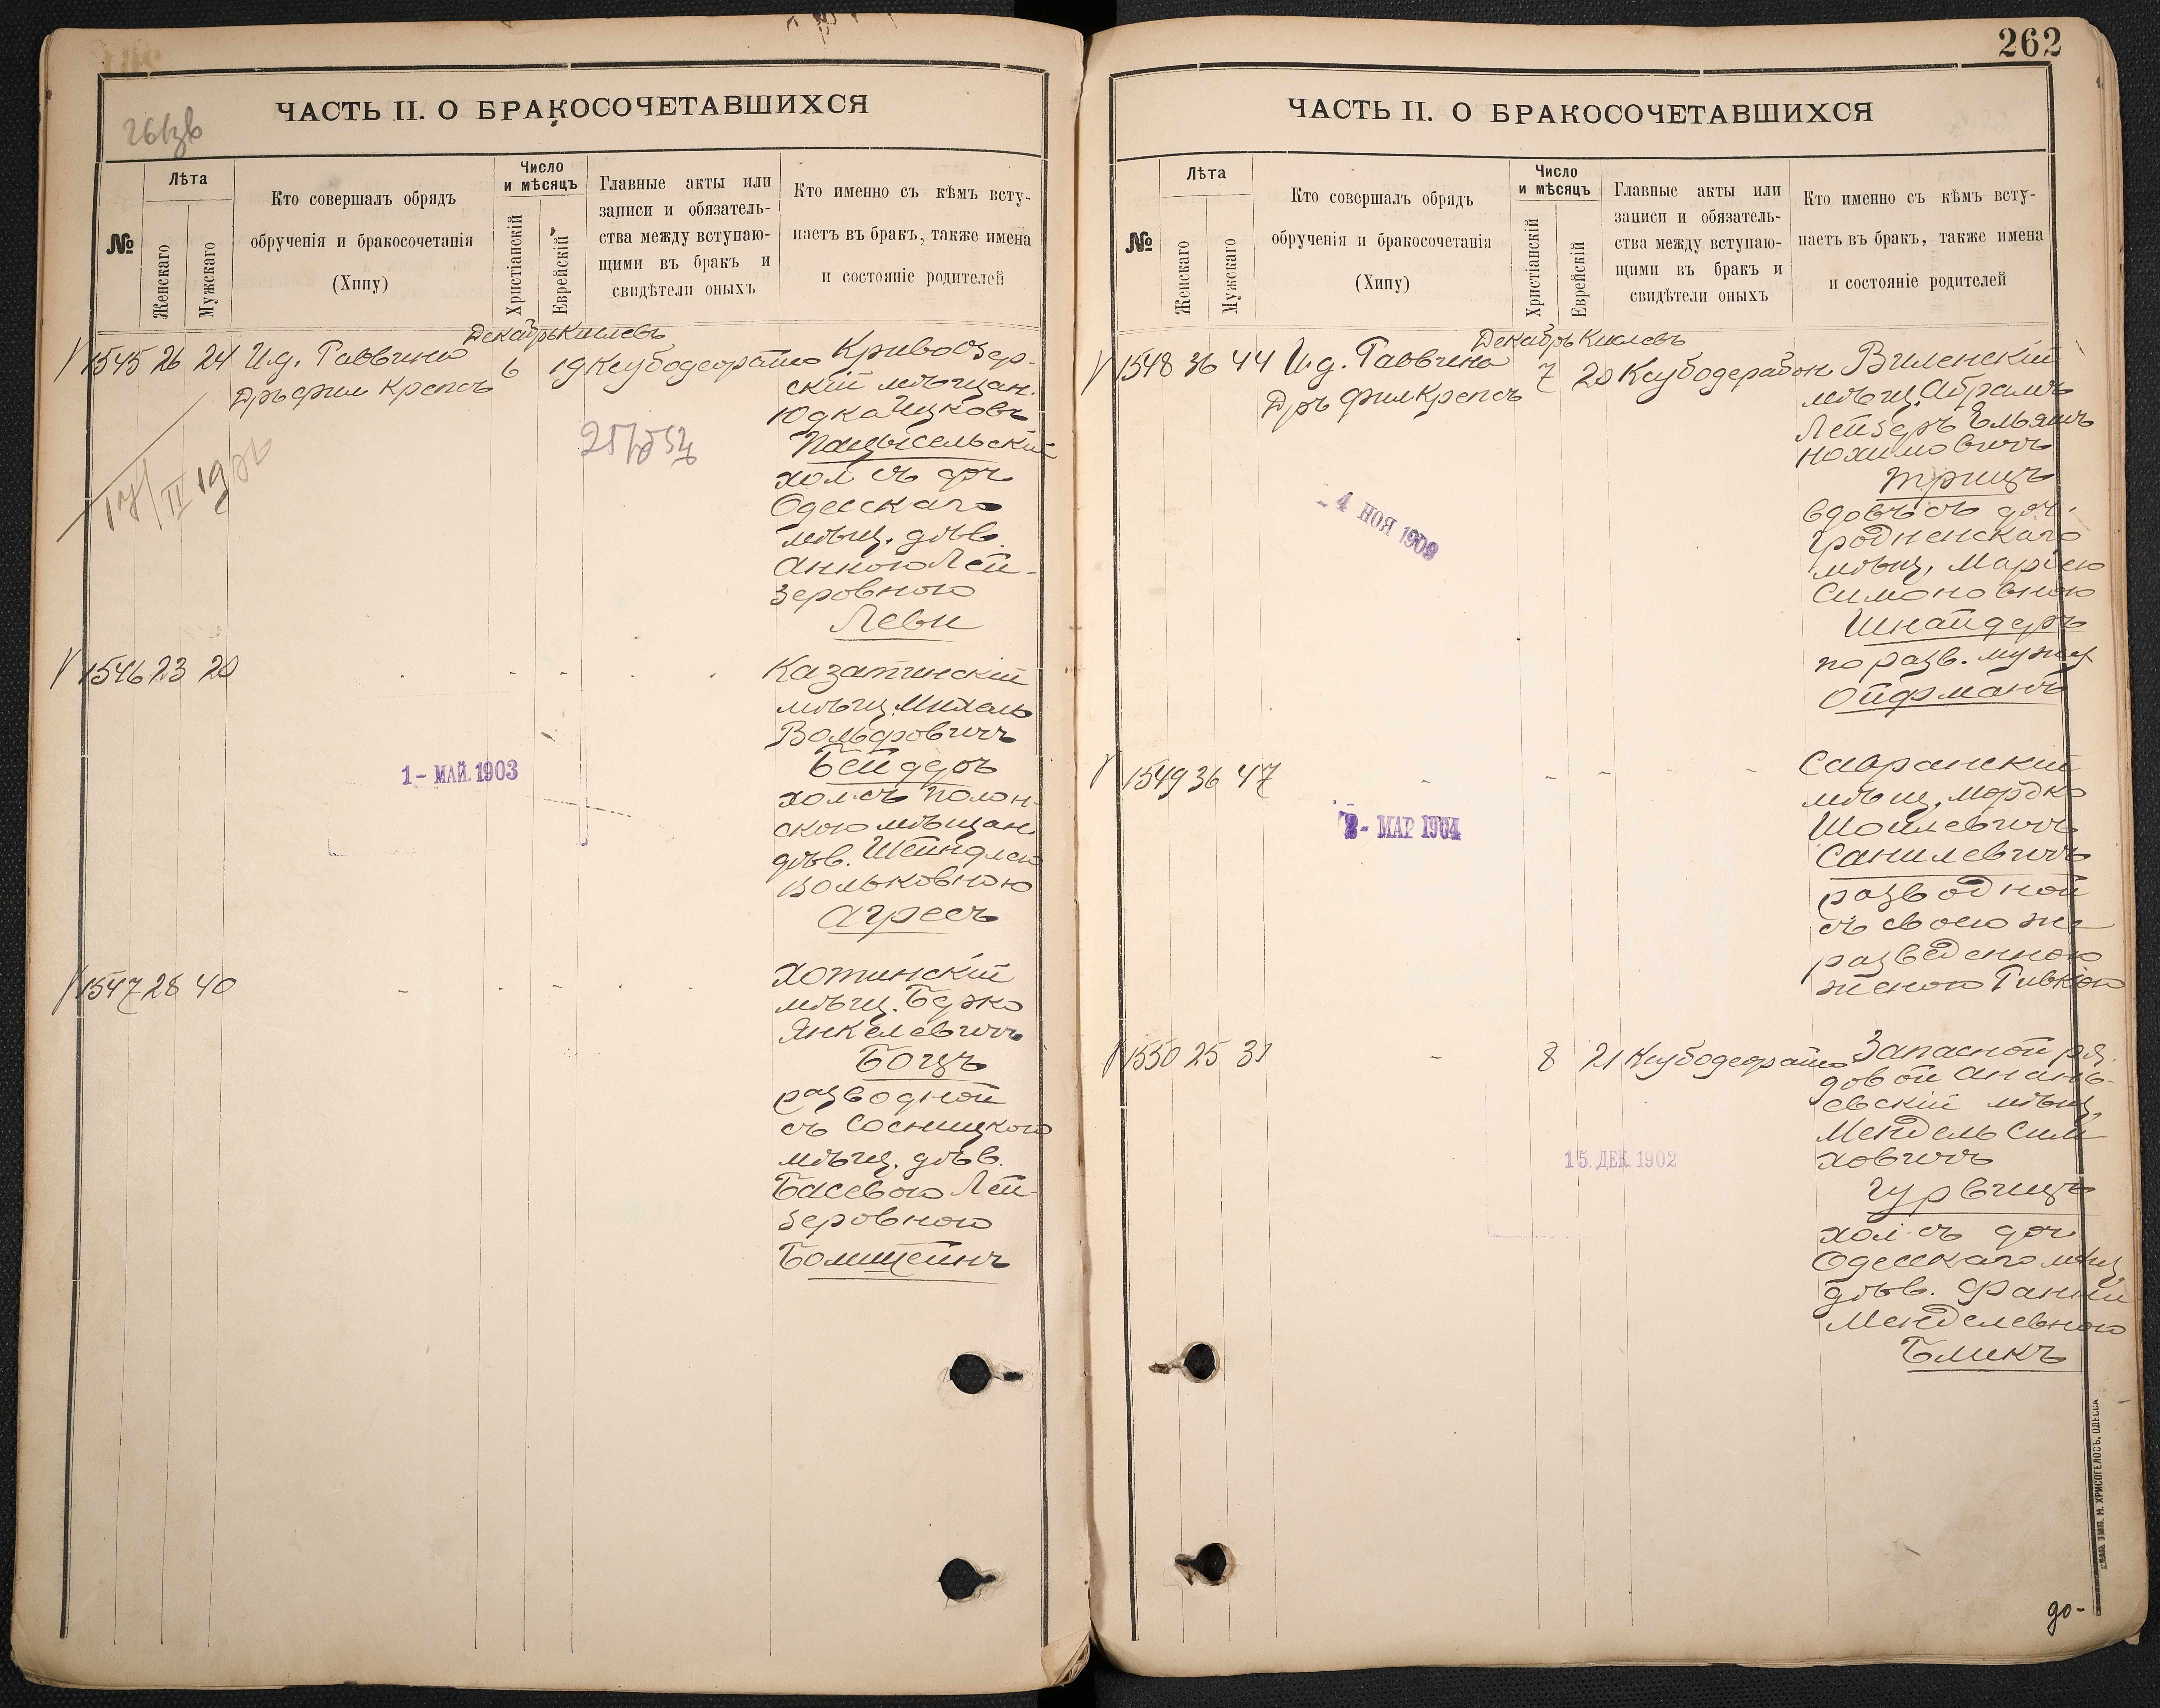 ЧАСТЬ II. О БРАКОСОЧЕТАВШИХСЯ
№
Лѣта
Женскаго
Мужскаго
Кто совершалъ обрядъ
обрученія и бракосочетанія
(Хипу)
Число
и мѣсяцъ
Христіанскій
Еврейскій
Главные акты или
записи и обязатель-
ства между вступаю-
щими въ бракъ и
свидѣтели оныхъ
Кто именно съ кѣмъ всту-
паетъ въ бракъ, также имена
и состояніе родителей
Декабрь Кислевъ
1545 26 24 И.д. Раввина
Дръ фил Крепсъ
6 19
Кривоозер-
скій мѣщан.
Юдка Ицковъ
Пацысельскій
хол съ доч
Одесскаго
мѣщ. дѣв.
Анною Лей-
зеровною
Леви
1546 23 20
Казатинскій
мѣщ. Михель
Вольфовичъ
Бейдеръ
хол съ полон-
скою мѣщан.
дѣв. Шейндлею
Вольковною
Агресъ
1 - МАЙ. 1903
1547 28 40
Хотинскій
мѣщ. Берко
Янкелевичъ
Боцъ
разводной
съ Сосницкого
мѣщ. дѣв.
Басевою Лей-
зеровною
Бомштейнъ
262
ЧАСТЬ II. О БРАКОСОЧЕТАВШИХСЯ
№
Лѣта
Женскаго
Мужскаго
Кто совершалъ обрядъ
обрученія и бракосочетанія
(Хипу)
Число
и мѣсяцъ
Христіанскій
Еврейскій
Главные акты или
записи и обязатель-
ства между вступаю-
щими въ бракъ и
свидѣтели оныхъ
Кто именно съ кѣмъ всту-
паетъ въ бракъ, также имена
и состояніе родителей
Декабрь Кислевъ
1548 36 44 И.д. Раввина
Дръ фил Крепсъ
7 20
Виленскій
мѣщ. Абрамъ
Лейзеръ Ельяшъ
Нохимовичъ
Трицъ
вдовъ съ доч.
Гродненскаго
мѣщ. Маріею
Симоновною
Шнайдеръ
по разв. мужу
Ойфманъ
- 4 НОЯ 1909
1549 36 47
Савранскій
мѣщ. Мордко
Шоилевичъ
Санилевичъ
разводной
съ своею же
разведенною
женою Ривкою
- МАР 1904
1550 25 31
8 21
Запасной ря-
довой Анань-
евскій мѣщ.
Мендель Сим
ховичъ
Гурвицъ
хол съ доч
Одесскаго мѣщ
дѣв. Фанни
Менделевною
Бликъ
15. ДЕК. 1902
СЛАВ. ТИП. Н. ХРИСОГЕЛОСЪ. ОДЕССА
до-